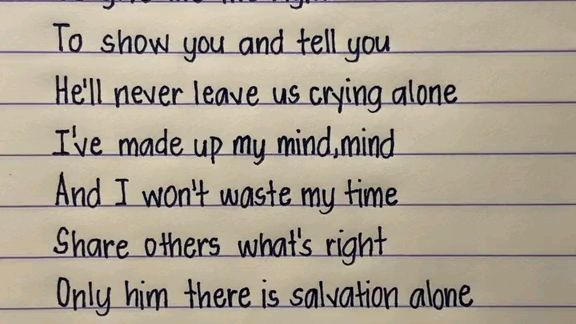 To show you and tell you
He'll never leave us crying alone
I've made up my mind,mind
And I won't waste my time
Share others what's right
Only him there is salvation alone